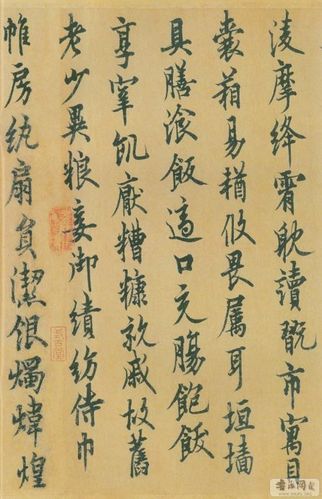 淩摩絳霄耽讀翫市寓目
囊箱易輶攸畏屬耳垣墻
具膳湌飯適口充腸飽飫
享宰飢厭糟糠親戚故舊
老少異粮妾御績紡侍巾
帷房紈扇員潔銀燭煒煌